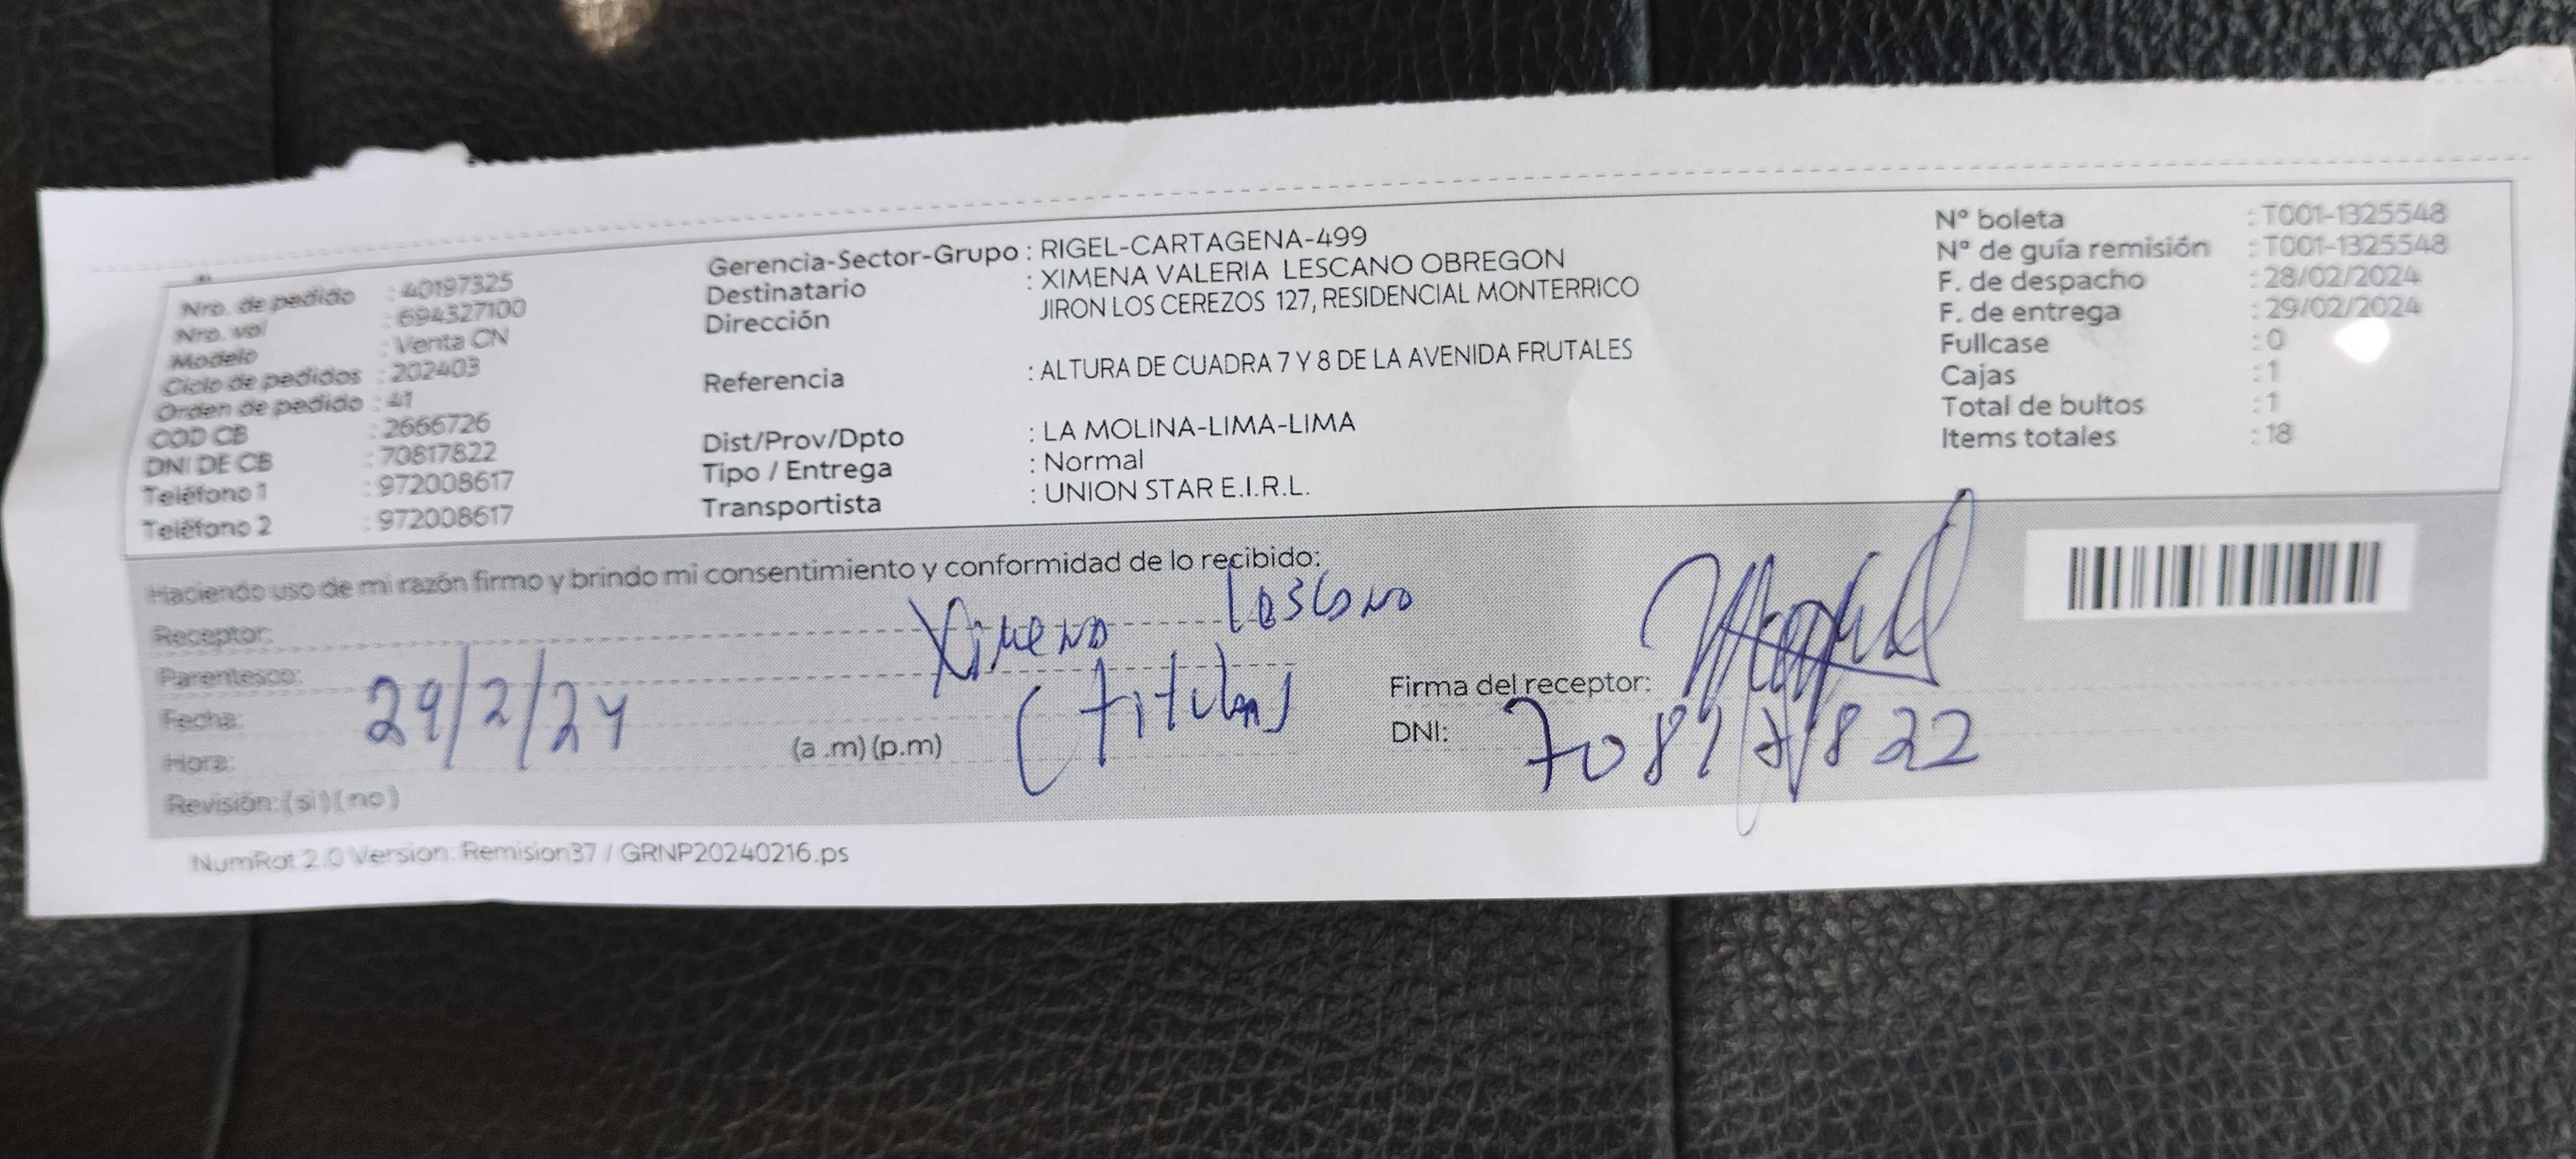 Nro. de pedido : 40197325
Nro. vol : 694327100
Modelo : Venta CN
Ciclo de pedidos : 202403
Orden de pedido : 41
COD CB : 2666726
DNI DE CB : 70817822
Teléfono 1 : 972008617
Teléfono 2 : 972008617
Gerencia-Sector-Grupo : RIGEL-CARTAGENA-499
Destinatario : XIMENA VALERIA LESCANO OBREGON
Dirección JIRON LOS CEREZOS 127, RESIDENCIAL MONTERRICO
Referencia : ALTURA DE CUADRA 7 Y 8 DE LA AVENIDA FRUTALES
Dist/Prov/Dpto : LA MOLINA-LIMA-LIMA
Tipo / Entrega : Normal
Transportista : UNION STAR E.I.R.L.
N° boleta : T001-1325548
N° de guía remisión : T001-1325548
F. de despacho : 28/02/2024
F. de entrega : 29/02/2024
Fullcase : 0
Cajas : 1
Total de bultos : 1
Items totales : 18
Haciendo uso de mi razón firmo y brindo mi consentimiento y conformidad de lo recibido:
Receptor: Ximena Lescano
Parentesco: (titular)
Fecha: 29/2/24
Hora: (a .m) (p.m)
Revisión: (si) (no)
Firma del receptor:
DNI: 70817822
NumRot 2.0 Version: Remision37 / GRNP20240216.ps